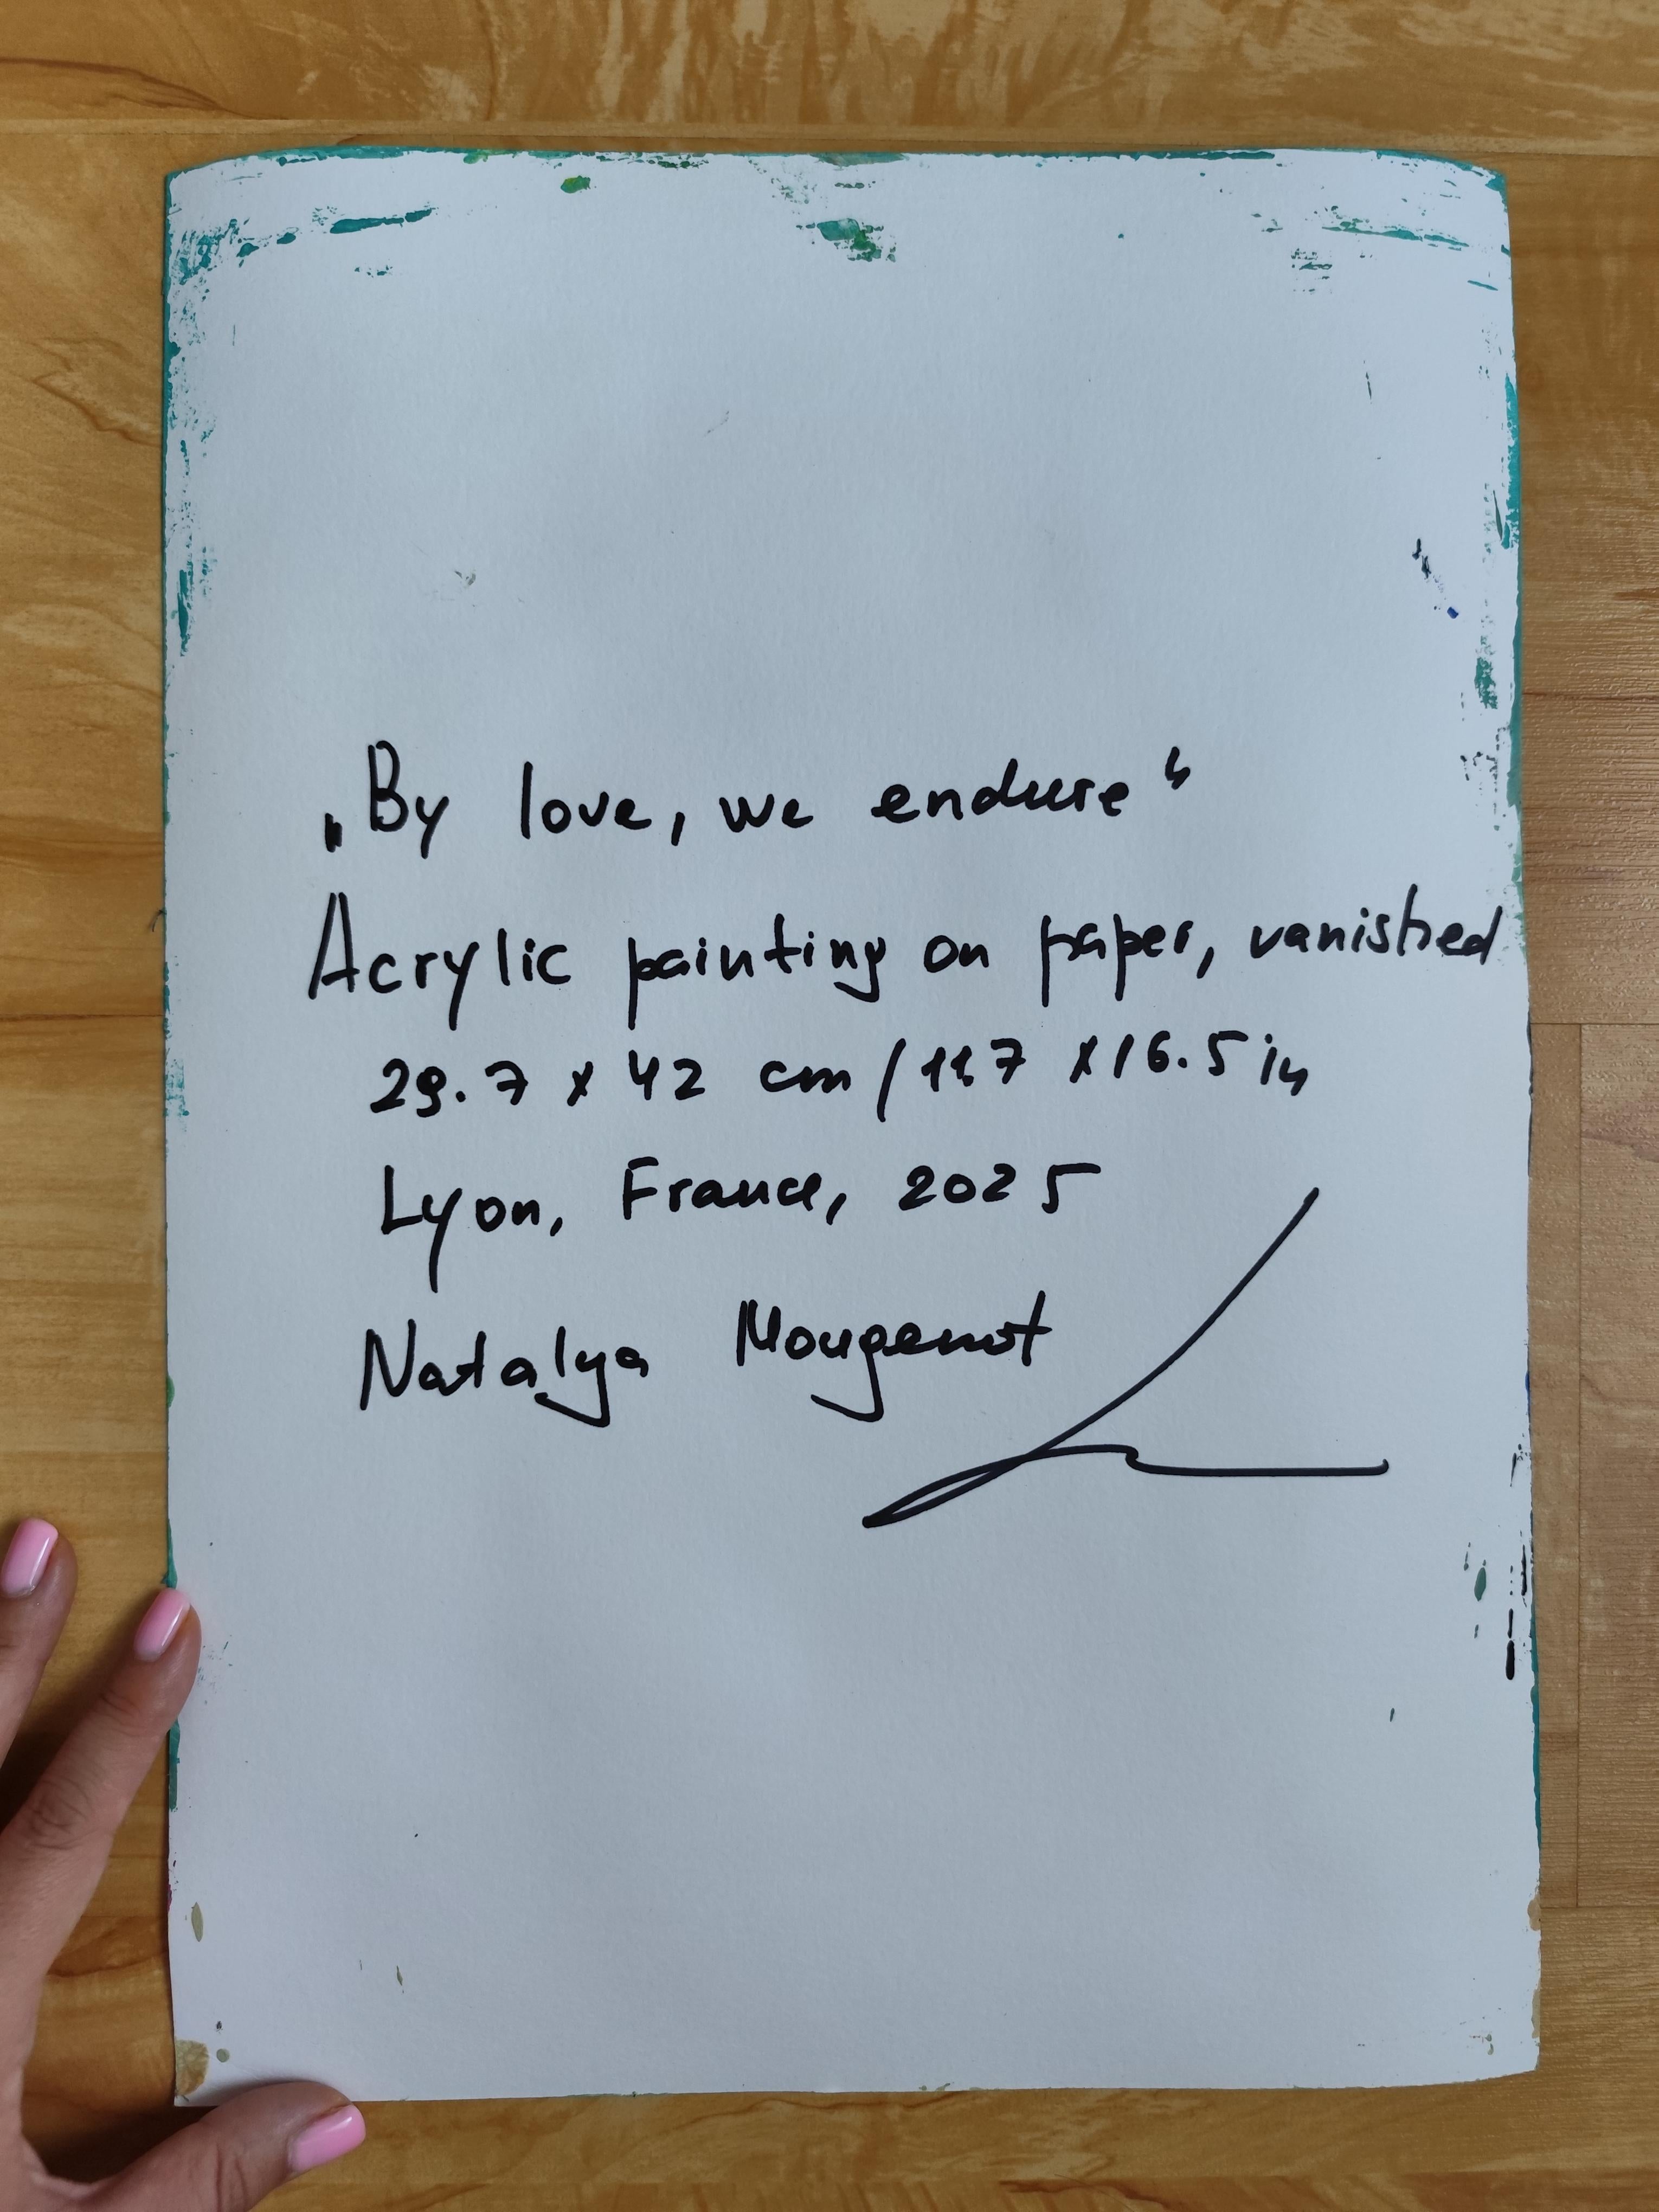 „By love, we endure“
Acrylic painting on paper, vanished
29.7 x 42 cm / 11.7 x 16.5 in
Lyon, France, 2025
Natalya Mougenot